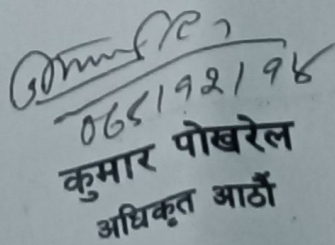 ०७८।१२।१४
कुमार पोखरेल
अधिकृत आठौं